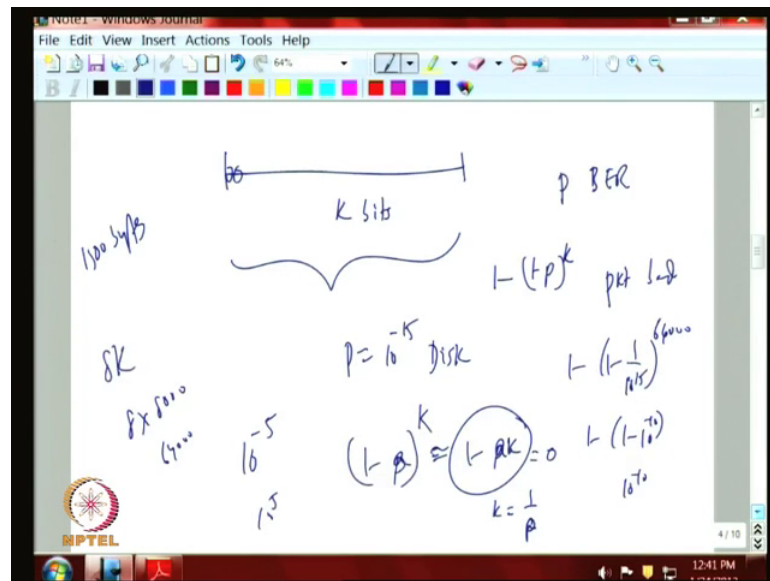 Note1 - Windows Journal
File Edit View Insert Actions Tools Help
64%
B I
K bits
P BER
1500 bytes
1-(1-p)^K pkt bad
8K
P = 10^-15 Disk
1-(1-1/10^15)^64000
8x8000
64000
10^-5
(1-p)^K ≅ 1-pK = 0
1-(1-10^-10)
10^5
K = 1/p
10^-10
NPTEL
4 / 10
12:41 PM